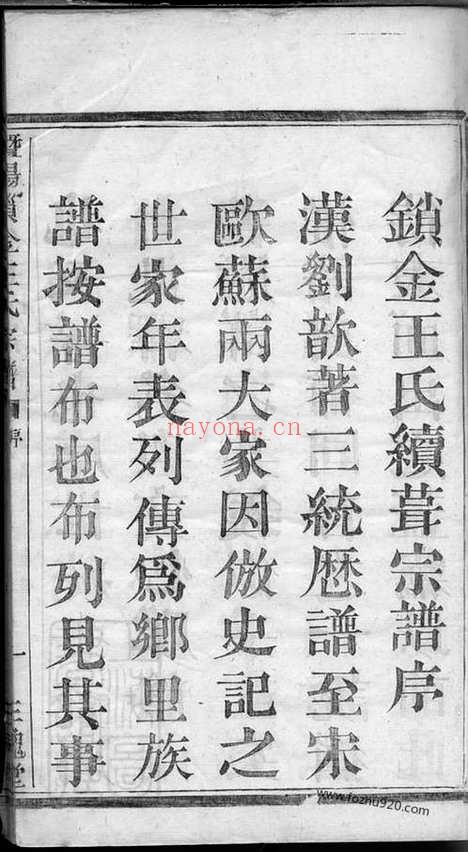 鎖金王氏續葺宗譜序
漢劉歆著三統厯譜至宋
歐蘇兩大家因倣史記之
世家年表列傳爲鄉里族
譜按譜布也布列見其事
暨陽鎖金王氏宗譜
序
一
三槐堂
nayona.cn
www.fozhu920.com